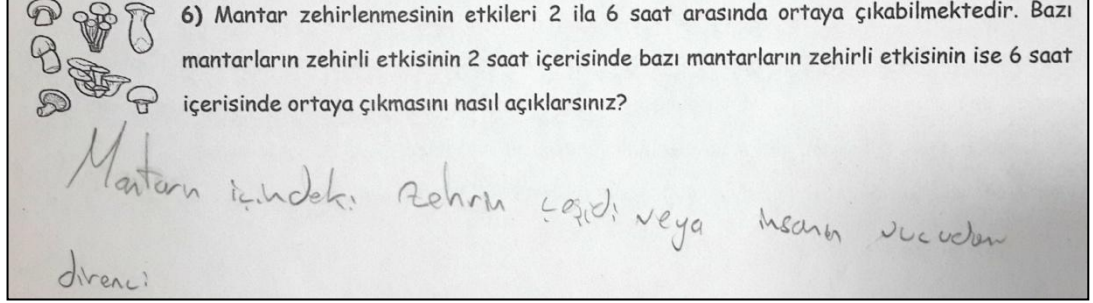 6) Mantar zehirlenmesinin etkileri 2 ila 6 saat arasında ortaya çıkabilmektedir. Bazı
mantarların zehirli etkisinin 2 saat içerisinde bazı mantarların zehirli etkisinin ise 6 saat
içerisinde ortaya çıkmasını nasıl açıklarsınız?
Mantarın içindeki zehrin çeşidi veya insanın vucudun
direnci